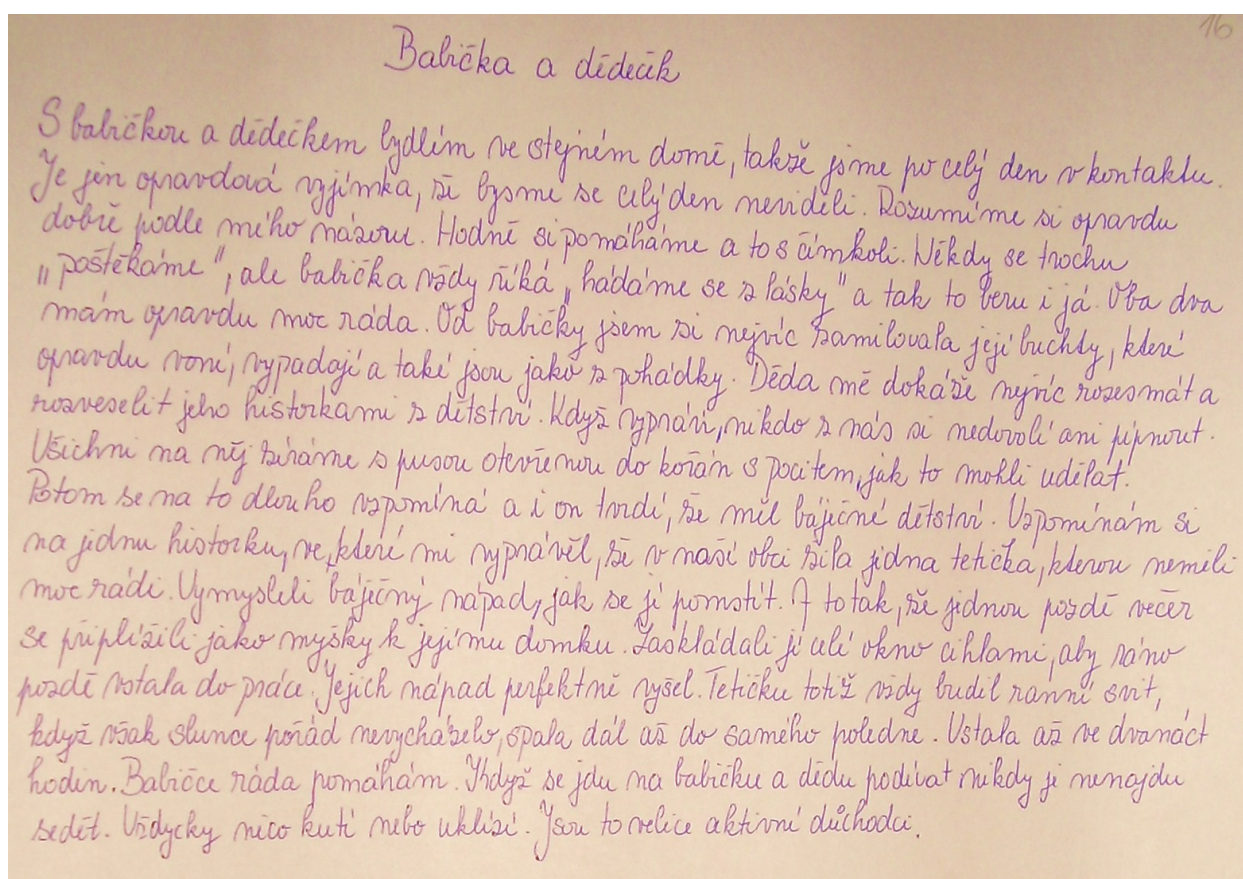 16
Babička a dědeček
S babičkou a dědečkem bydlím ve stejném domě, takže jsme po celý den v kontaktu.
Je jen opravdová vyjímka, že bysme se celý den neviděli. Rozumíme si opravdu
dobře podle mého názoru. Hodně si pomáháme a to s čímkoli. Někdy se trochu
„poštěkáme", ale babička vždy říká „hádáme se z lásky" a tak to beru i já. Oba dva
mám opravdu moc ráda. Od babičky jsem si nejvíc zamilovala její buchty, které
opravdu voní, vypadají a také jsou jako z pohádky. Děda mě dokáže nejvíc rozesmát a
rozveselit jeho historkami z dětství. Když vypráví, nikdo z nás si nedovolí ani pípnout.
Všichni na něj zíráme s pusou otevřenou do kořán s pocitem, jak to mohli udělat.
Potom se na to dlouho vzpomíná a i on tvrdí, že měl báječné dětství. Vzpomínám si
na jednu historku, ve které mi vyprávěl, že v naší obci žila jedna tetička, kterou neměli
moc rádi. Vymysleli báječný nápad, jak se jí pomstít. A to tak, že jednou pozdě večer
se připlížili jako myšky k jejímu domku. Zaskládali jí celé okno cihlami, aby ráno
pozdě vstala do práce. Jejich nápad perfektně vyšel. Tetičku totiž vždy budil ranní svit,
když však slunce pořád nevycházelo, spala dál až do samého poledne. Vstala až ve dvanáct
hodin. Babičce ráda pomáhám. Když se jdu na babičku a dědu podívat nikdy je nenajdu
sedět. Vždycky něco kutí nebo uklízí. Jsou to velice aktivní důchodci.